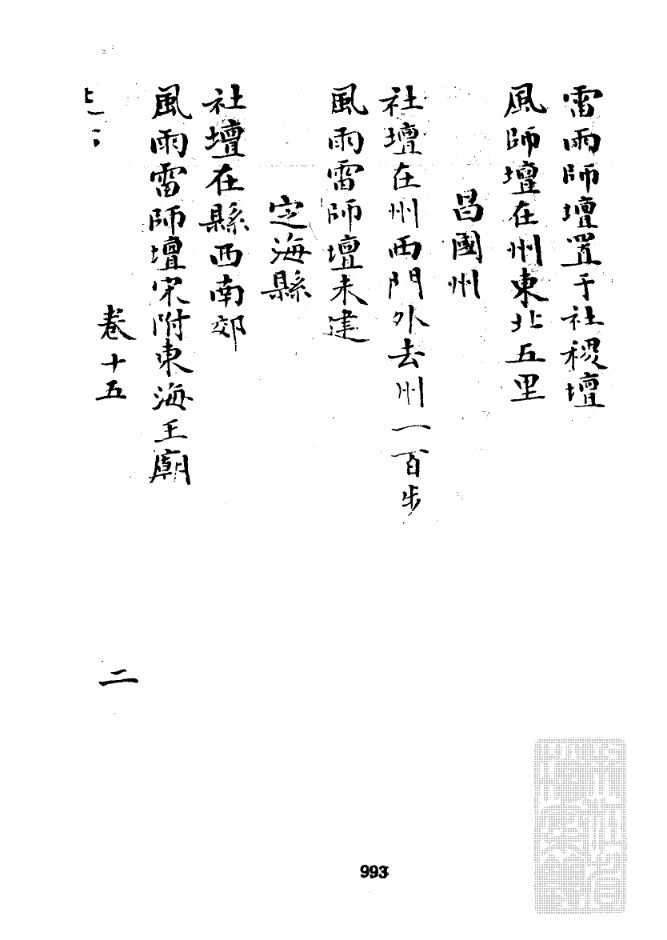 雷雨師壇置于社稷壇
風師壇在州東北五里
昌國州
社壇在州西門外去州一百步
風雨雷師壇未建
定海縣
社壇在縣西南郊
風雨雷師壇宋附東海王廟
卷十五
二
993